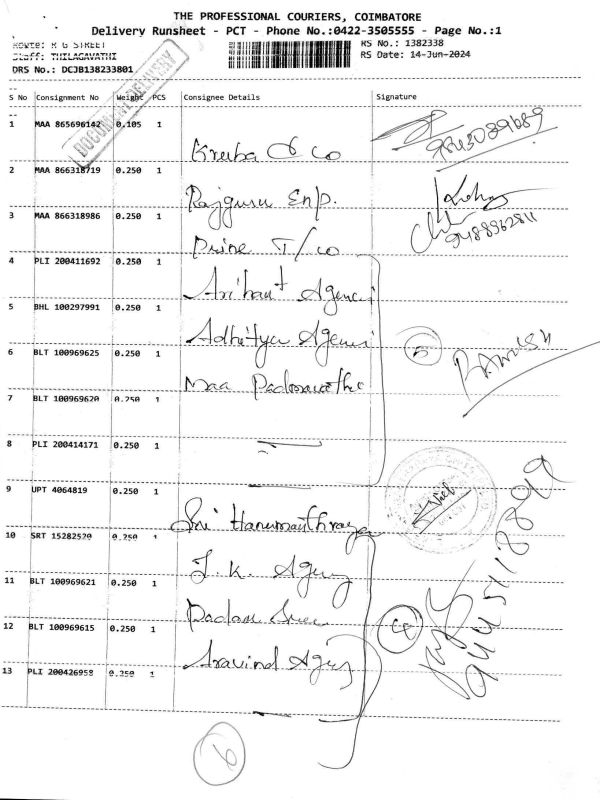 THE PROFESSIONAL COURIERS, COIMBATORE
Delivery Runsheet - PCT - Phone No.:0422-3505555 - Page No.:1
Route: R G STREET
RS No.: 1382338
Staff: THILAGAVATHI
RS Date: 14-Jun-2024
DRS No.: DCJB138233801
DOCUMENT DELIVERY
S No Consignment No Weight PCS Consignee Details Signature
1 MAA 865696142 0.105 1
Kreiba & Co 9843039689
2 MAA 866318719 0.250 1
Rajguru Enp.
3 MAA 866318986 0.250 1
Prine T/co 9488962811
4 PLI 200411692 0.250 1
Arihant Agenci
5 BHL 100297991 0.250 1
Adhitya Agenci 5
6 BLT 100969625 0.250 1
Maa Padmavathi RAMESH
7 BLT 100969620 0.250 1
8 PLI 200414171 0.250 1
9 UPT 4064819 0.250 1
Sri Hanumanthraya
10 SRT 15282520 0.250 1
J.K. Agency
11 BLT 100969621 0.250 1
Padam Sree 4
12 BLT 100969615 0.250 1
Aravind Agency
13 PLI 200426958 0.250 1
6